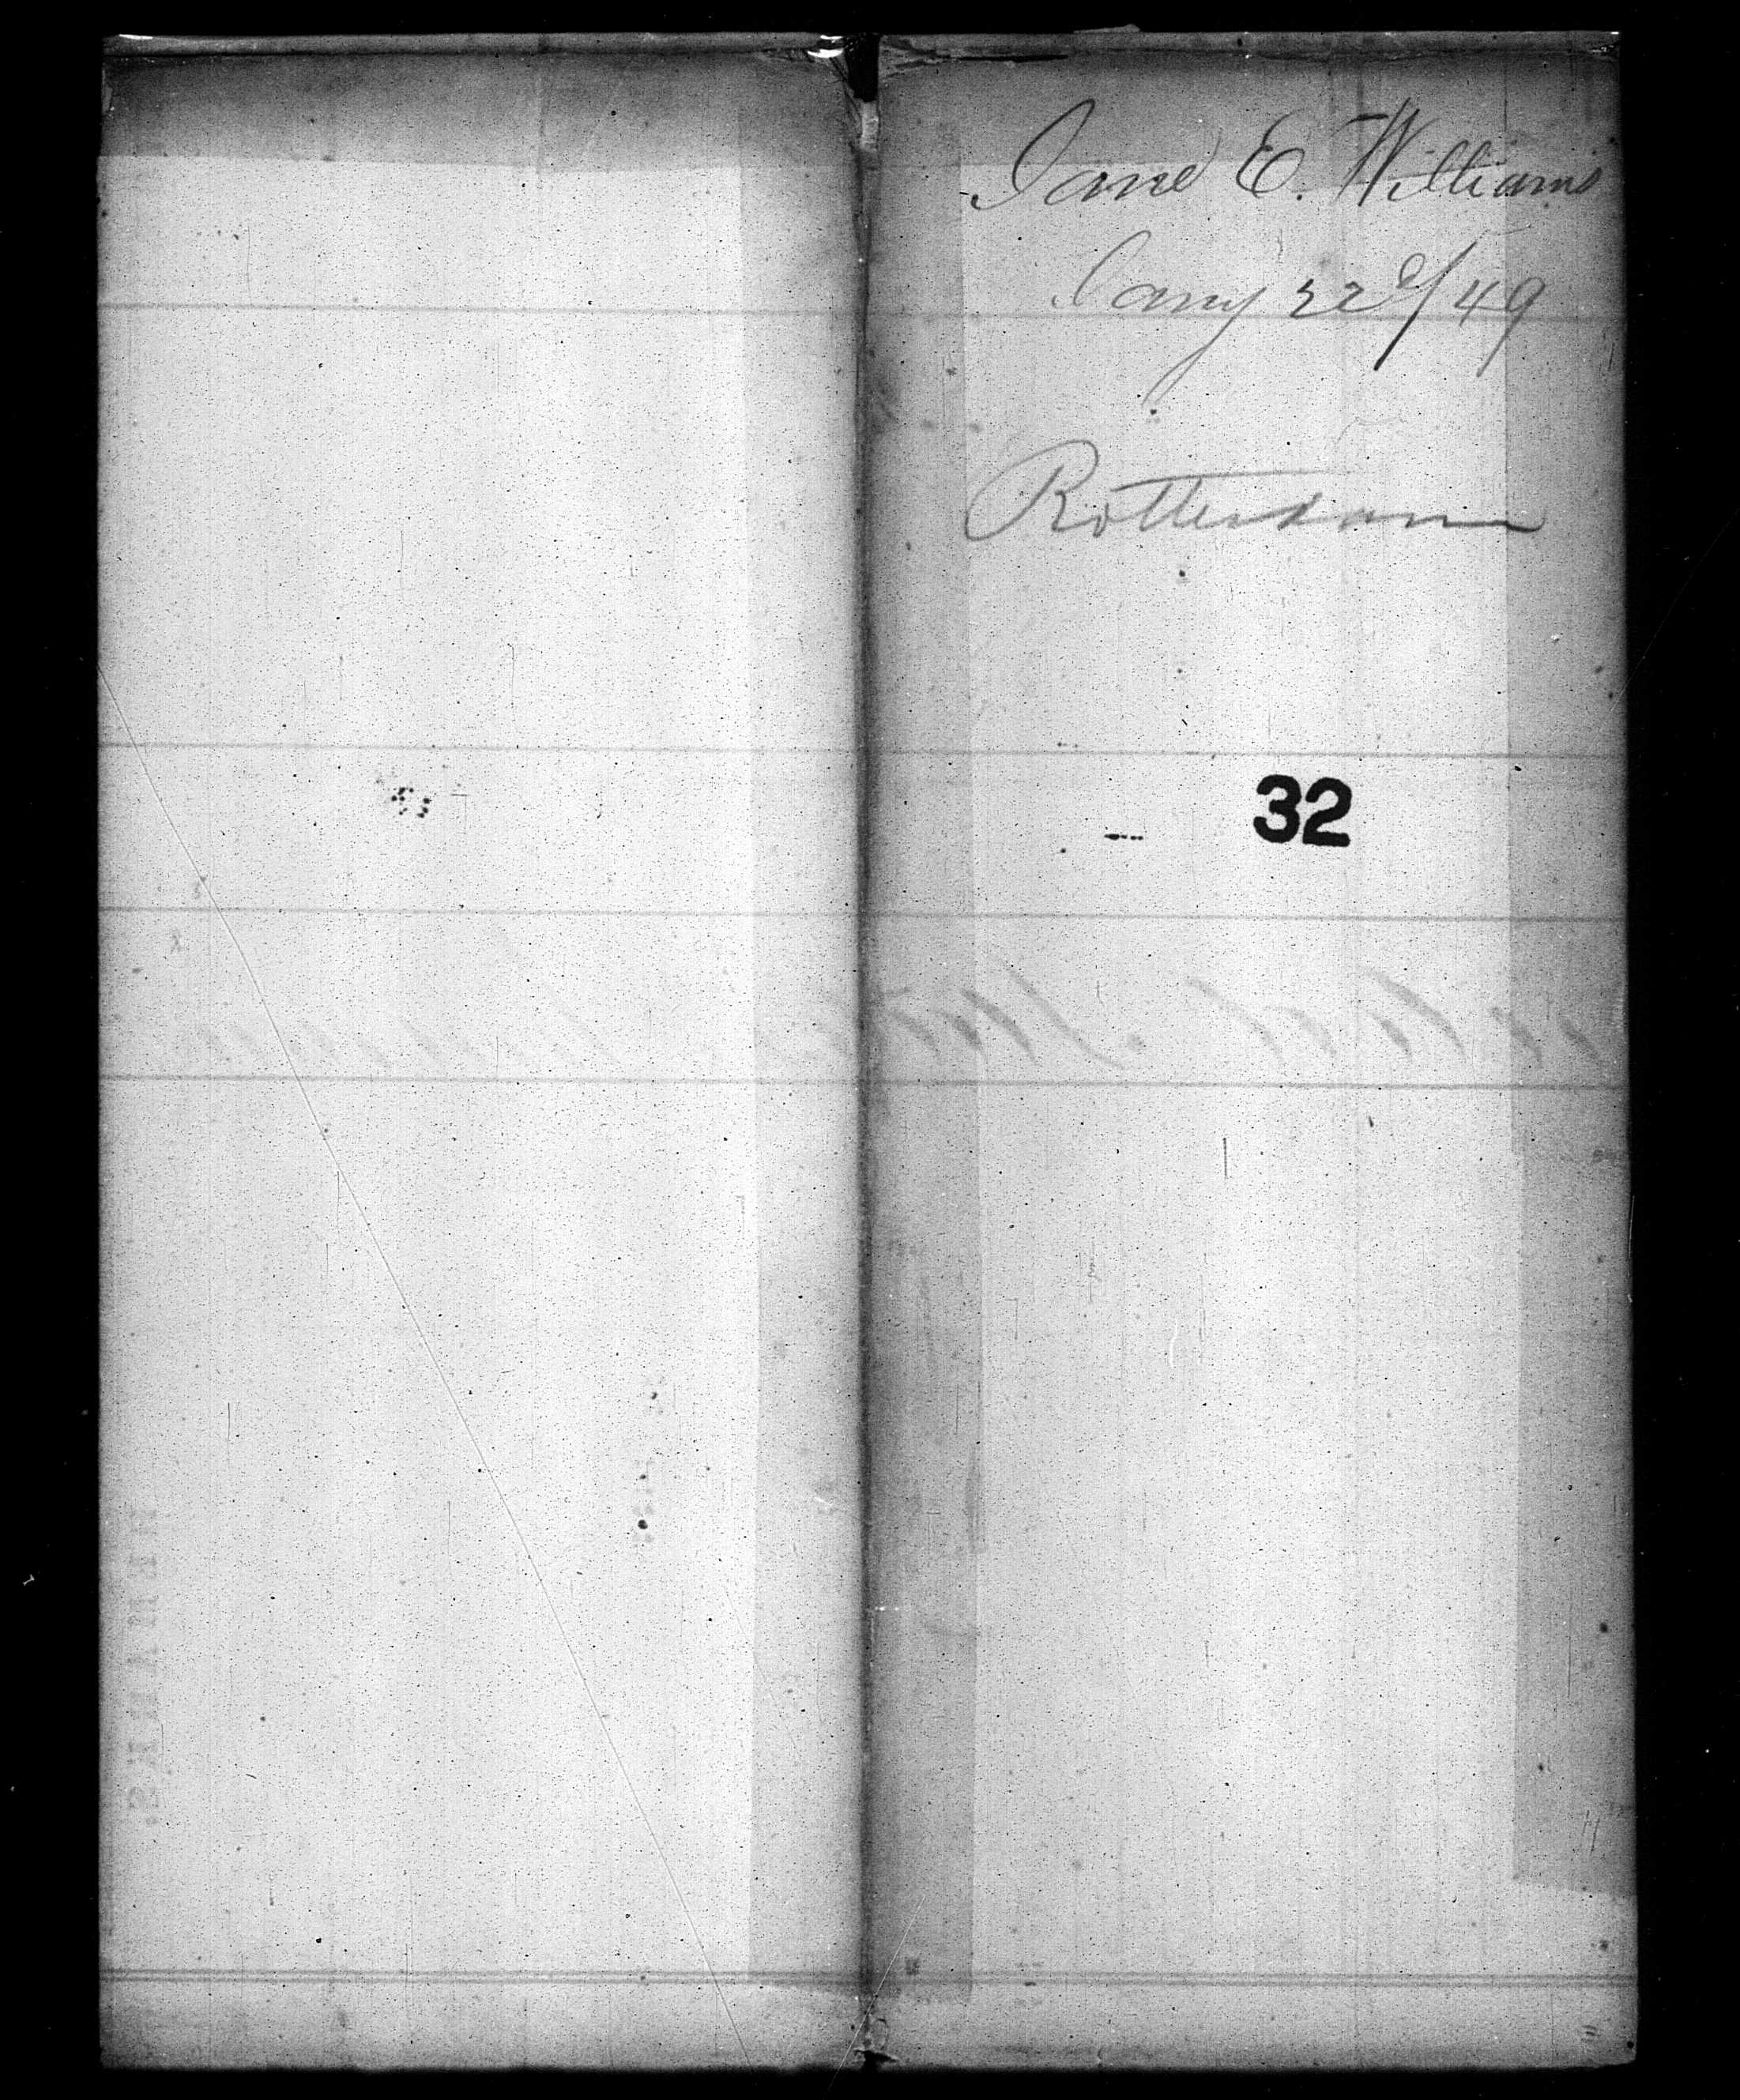 Jane E. Williams
Jany 22d/49
Rotterdam
32
REMARKS.